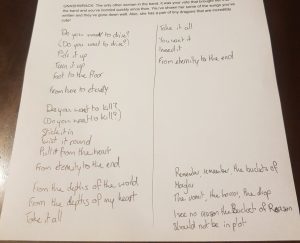 the band and you've bonded quickly since then. You've shared her some of the songs you've
written and they've gone down well. Also, she has a pair of tiny dragons that are incredibly
cute!
Do you want to drive?
(Do you want to drive?)
Pick it up
Turn it up
Foot to the floor
From here to eternity
Do you want to kill?
(Do you want to kill?)
Stick it in
Twist it round
Pull it from the heart
From eternity to the end
From the depths of the world
From the depths of my heart
Take it all
Take it all
You want it
I need it
From eternity to the end
Remember remember the buckets of
The vomit, the horror, the drop
I see no reason the Bucket of Reason
Should not be in plot